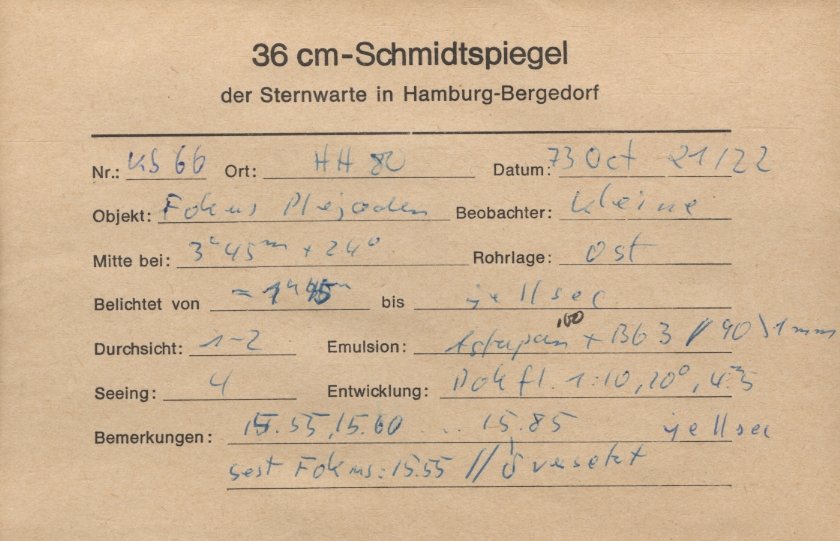 36 cm-Schmidtspiegel
der Sternwarte in Hamburg-Bergedorf
Nr.: KS 66 Ort: HH 80 Datum: 73 Oct 21/22
Objekt: Fokus Plejaden Beobachter: Kleine
Mitte bei: 3h 45m + 24° Rohrlage: Ost
Belichtet von bis je 11 sec
Durchsicht: 1-2 Emulsion: Astrapan 100 + BG 3 // 90 1mm
Seeing: 4 Entwicklung: Dokfl. 1:10, 20°, 4.5
Bemerkungen: 15.55, 15.60 ... 15.85 je 11 sec
best Fokus: 15.55 // versetzt